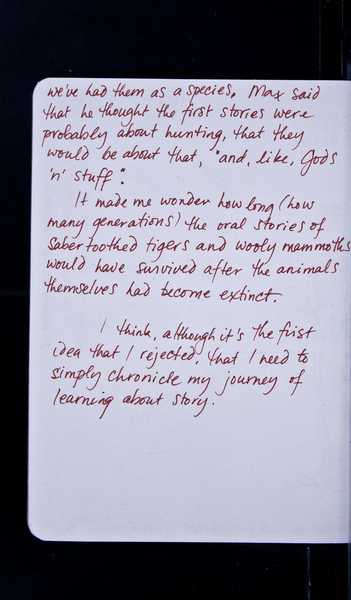 we've had them as a species. Max said
that he thought the first stories were
probably about hunting, that they
would be about that, "and, like, Gods
'n' stuff".
It made me wonder how long (how
many generations) the oral stories of
saber toothed tigers and wooly mammoths
would have survived after the animals
themselves had become extinct.
I think, although it's the first
idea that I rejected, that I need to
simply chronicle my journey of
learning about story.